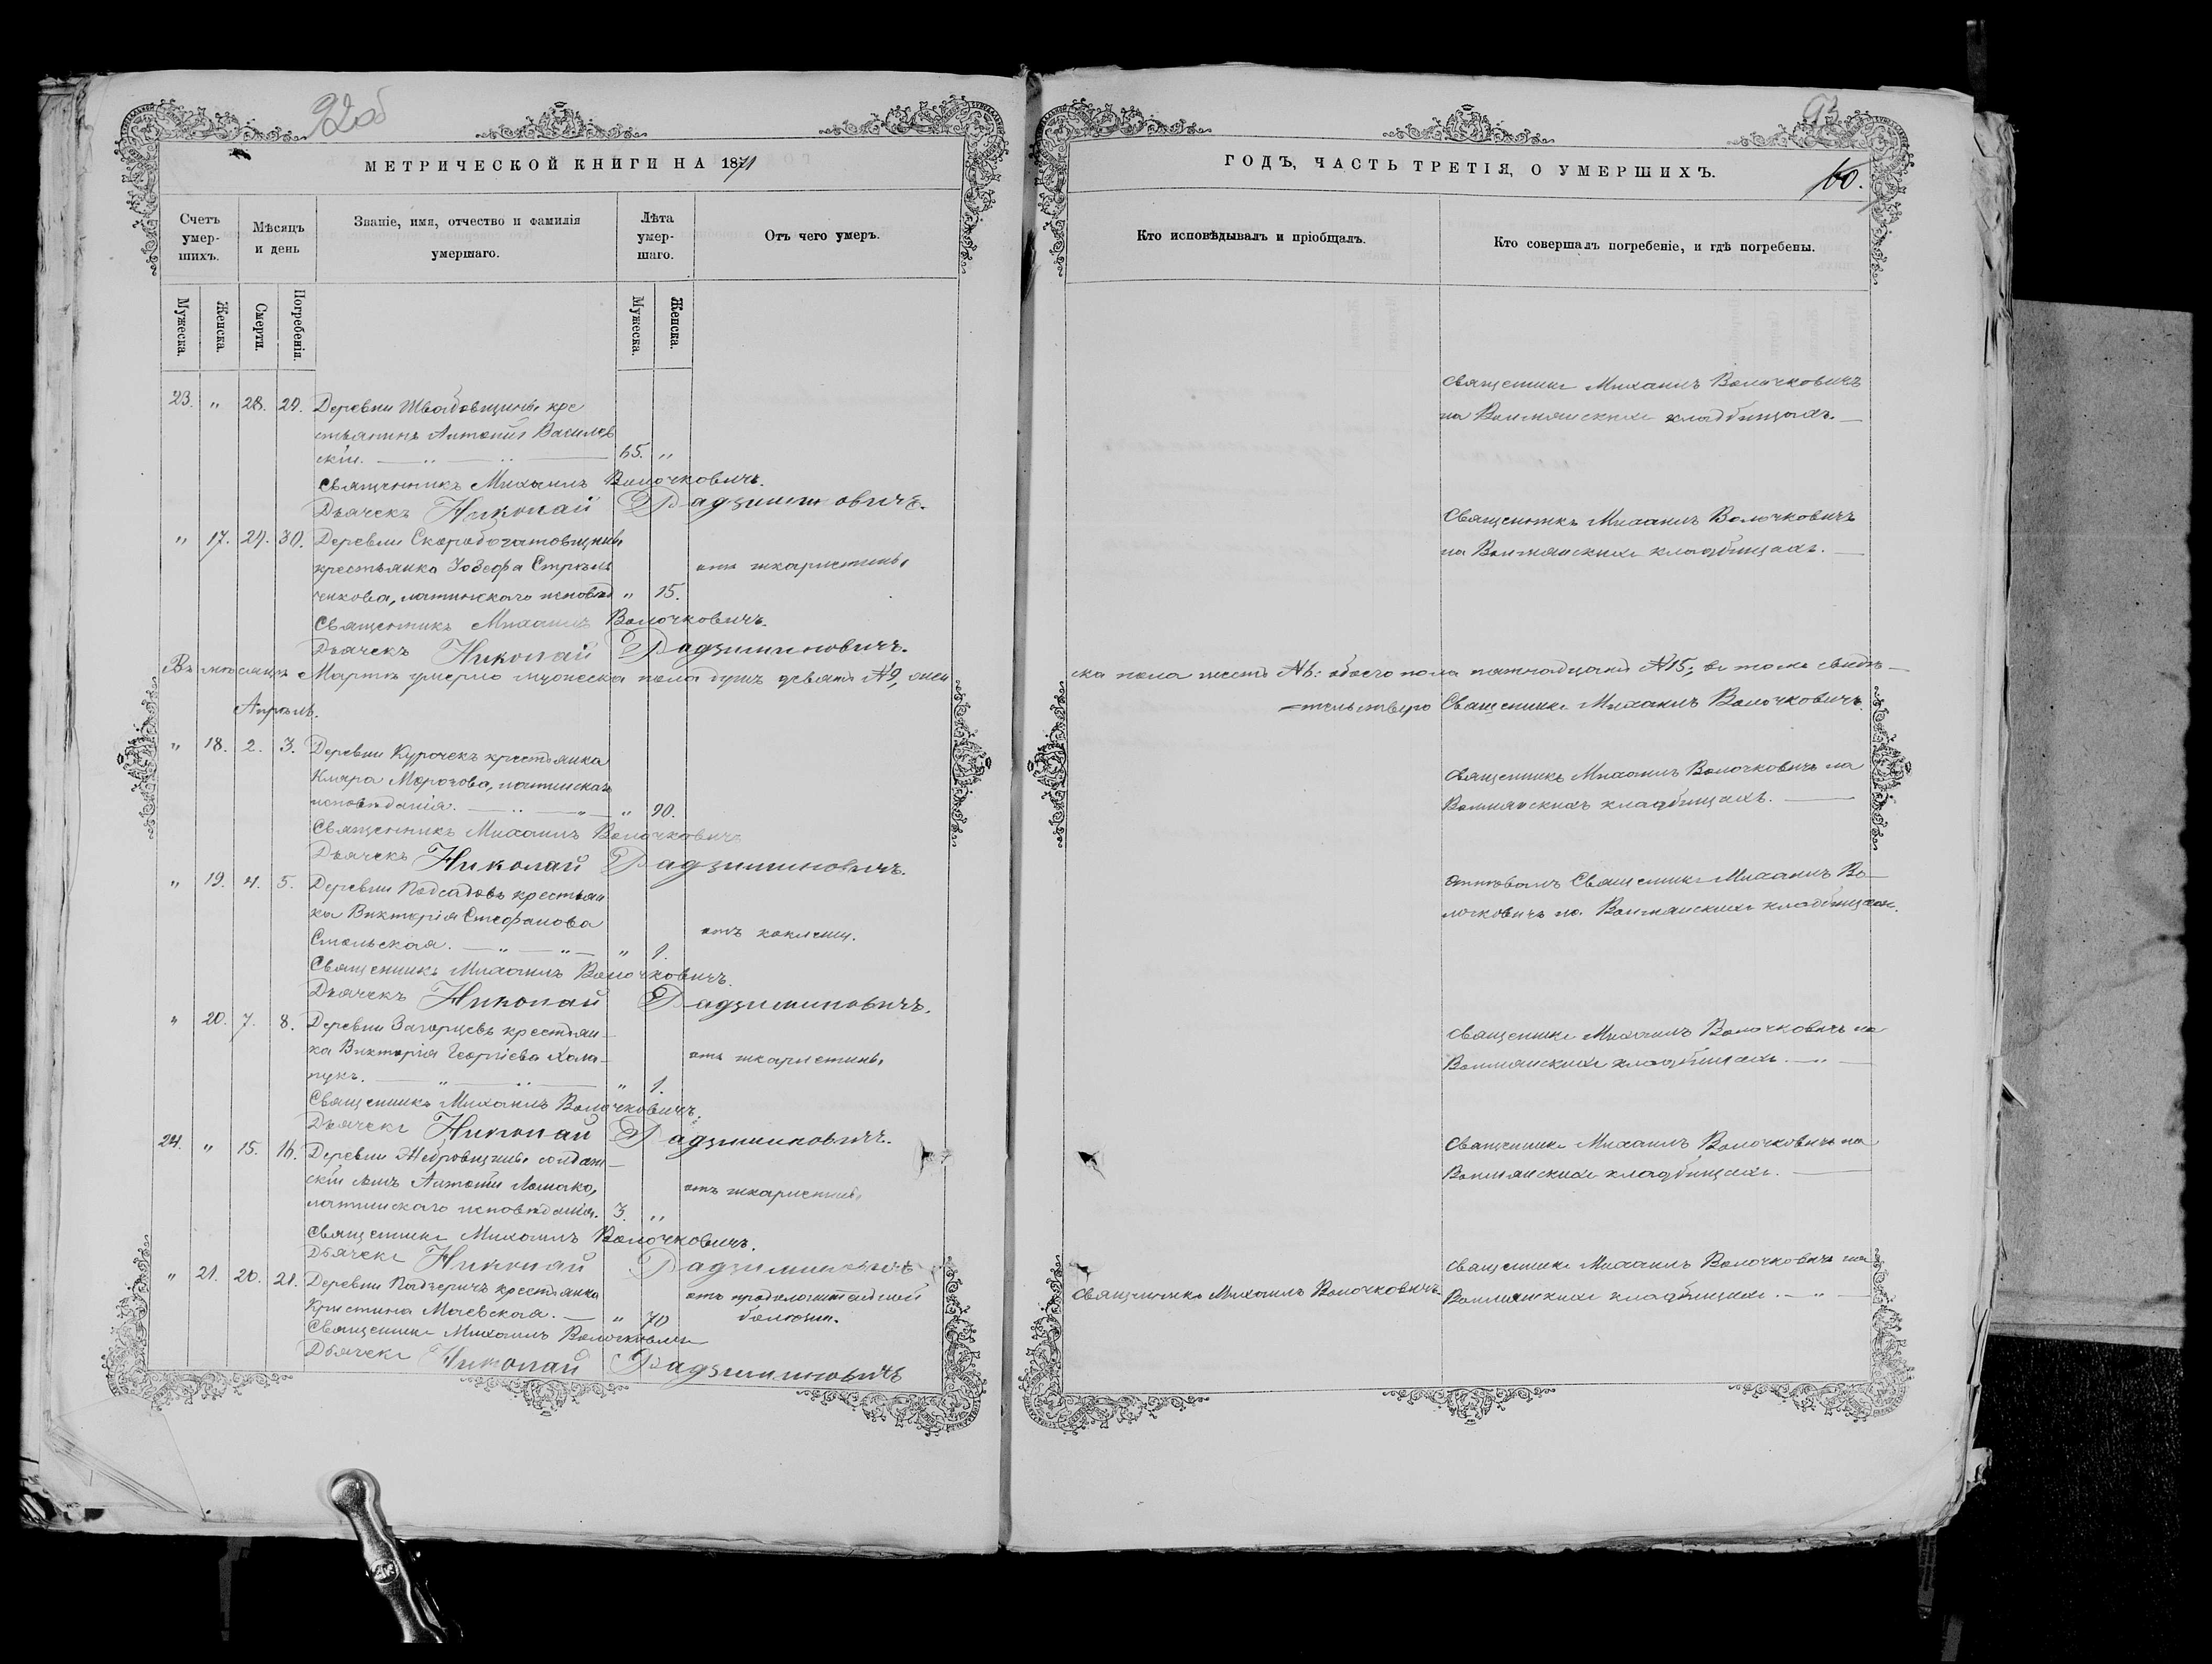 92об
МЕТРИЧЕСКОЙ КНИГИ НА 1871
Счетъ умер-шихъ.
Мѣсяцъ и день
Званіе, имя, отчество и фамилія умершаго.
Лѣта умер-шаго.
Отъ чего умеръ.
Мужеска.
Женска.
Смерти.
Погребенія.
Мужеска.
Женска.
23. " 28. 29. Деревни Швабовщины кре
стьянинъ Антоній Василев
скій. 65. "
Священникъ Михаилъ Волочковичъ.
Дьячекъ Николай Радзиминовичъ.
" 17. 29. 30. Деревни Скоробогатовщины
крестьянка Іозефа Стрѣль отъ шкарлятины
чикова, латинского исповѣд " 15.
Священникъ Михаилъ Волочковичъ.
Дьячекъ Николай Радзиминовичъ.
Въ мѣсяцѣ Мартѣ умерло мужеска пола душъ девять №9, жен
Апрѣль.
" 18. 2. 3. Деревни Курочекъ крестьянка
Клара Морозова, латинскаго
исповѣданія. " 90.
Священникъ Михаилъ Волочковичъ
Дьячекъ Николай Радзиминовичъ.
" 19. 4. 5. Деревни Подсадовъ крестьян
ка Викторія Стефанова отъ коклюши.
Смольская. " 1.
Священникъ Михаилъ Волочковичъ.
Дьячекъ Николай Радзиминовичъ.
" 20. 7. 8. Деревни Загорцевъ крестьян-
ка Викторія Георгіева Хала- отъ шкарлятины
пукъ. " 1.
Священникъ Михаилъ Волочковичъ.
Дьячекъ Николай Радзиминовичъ.
24. " 15. 16. Деревни солдат-
скій сынъ Антоній Ломако, отъ шкарлятины
латинскаго исповѣданія. 3. "
Священникъ Михаилъ Волочковичъ.
Дьячекъ Николай Радзиминовичъ
" 21. 20. 21. Деревни Падзеричъ крестьянка отъ продолжительной
Кристина Маевская. " 70 болѣзни.
Священникъ Михаилъ Волочковичъ
Дьячекъ Николай Радзиминовичъ
93
ГОДЪ, ЧАСТЬ ТРЕТІЯ, О УМЕРШИХЪ.
60.
Кто исповѣдывалъ и пріобщалъ.
Кто совершалъ погребеніе, и гдѣ погребены.
Священникъ Михаилъ Волочковичъ
на Волмянскихъ кладбищахъ.
Священникъ Михаилъ Волочковичъ
на Волмянскихъ кладбищахъ.
ска пола шесть №6: обоего пола пятнадцать №15; въ томъ свидѣ-
тельствую Священникъ Михаилъ Волочковичъ
Священникъ Михаилъ Волочковичъ на
Волмянскихъ кладбищахъ.
отпѣвалъ Священникъ Михаилъ Во-
лочковичъ на Волмянскихъ кладбищахъ.
Священникъ Михаилъ Волочковичъ на
Волмянскихъ кладбищахъ.
Священникъ Михаилъ Волочковичъ на
Волмянскихъ кладбищахъ.
Священникъ Михаилъ Волочковичъ на
Священникъ Михаилъ Волочковичъ Волмянскихъ кладбищахъ.